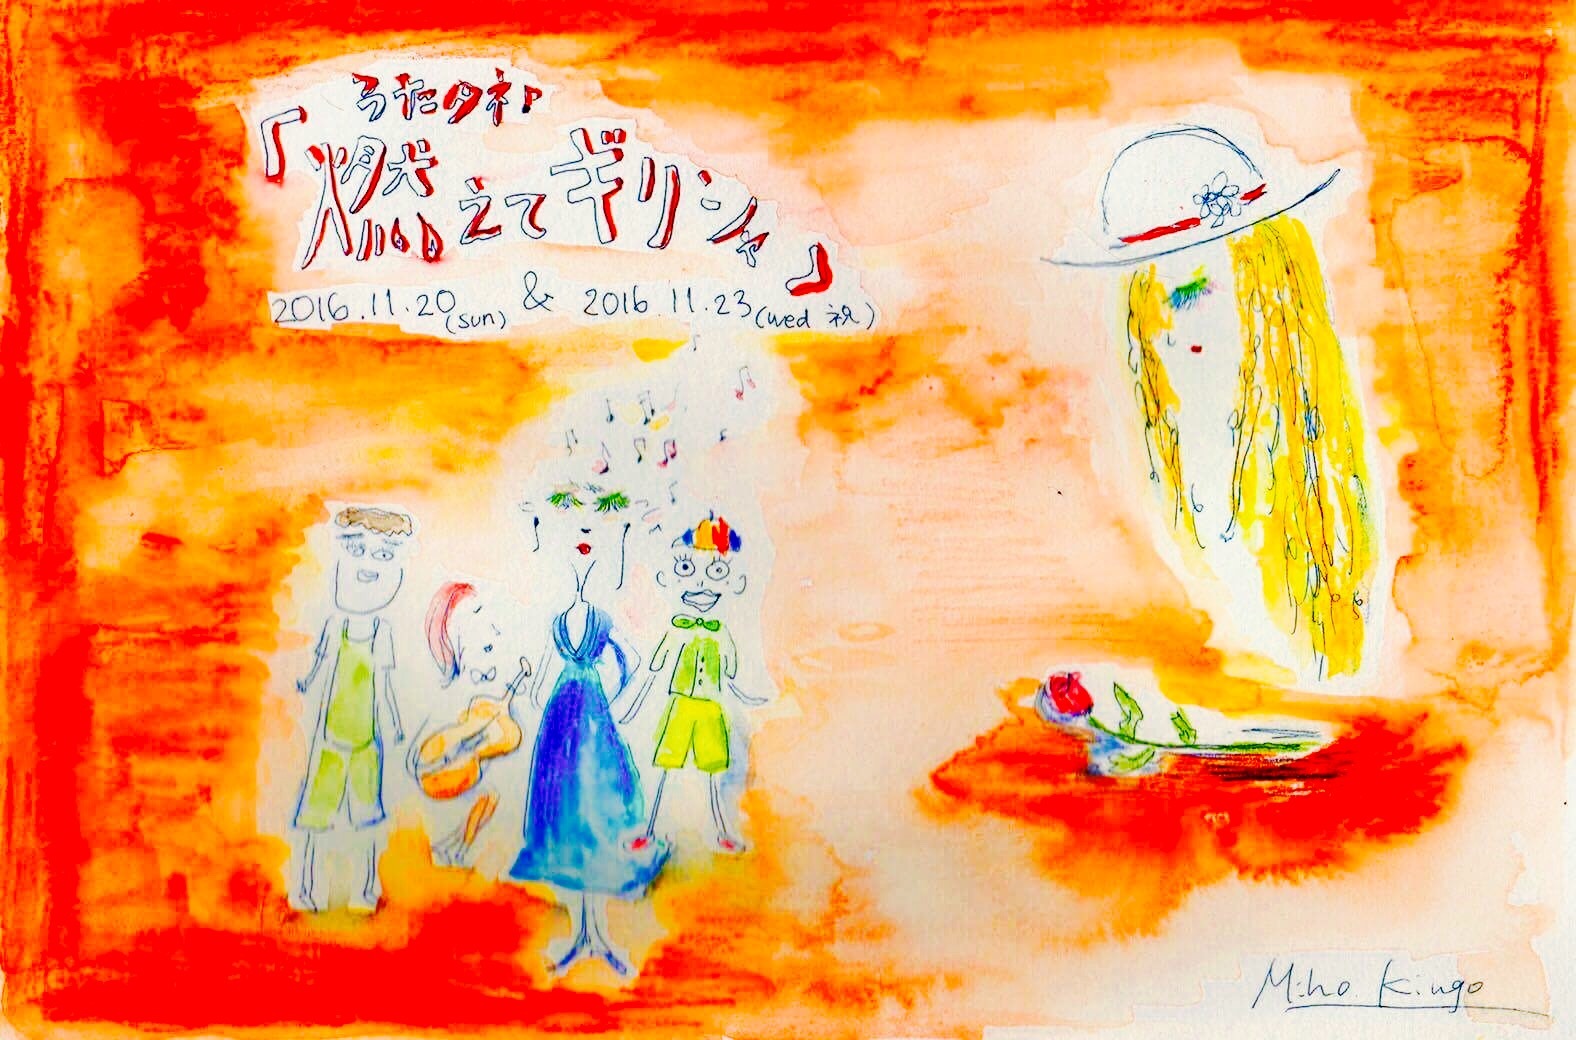 うたタネ♪
「燃えてギリシャ」
2016.11.20(sun) & 2016.11.23(wed 祝)
Miho Kingo